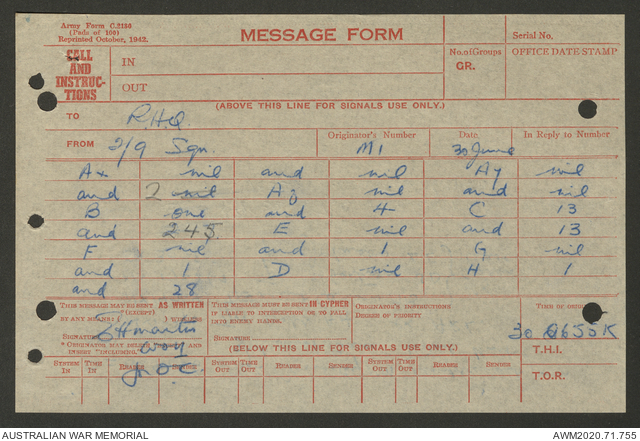 Army Form C.2136
(Pads of 100)
Reprinted October, 1942.
MESSAGE FORM
Serial No.
CALL AND INSTRUCTIONS
IN
OUT
No. of Groups
GR.
OFFICE DATE STAMP
(ABOVE THIS LINE FOR SIGNALS USE ONLY.)
TO R.H.Q.
FROM 2/9 Sqn.
Originator's Number M1
Date 30 June
In Reply to Number
nil and nil nil
and nil nil and nil
B one and 4 C 13
and 245 E nil and 13
F nil and 1 G nil
and 1 D nil H 1
and 28
THIS MESSAGE MAY BE SENT AS WRITTEN
(EXCEPT)
BY ANY MEANS: ( ) WIRELESS
SIGNATURE
* ORIGINATOR MAY DELETE
INSERT "INCLUDING,"
for O.C.
THIS MESSAGE MUST BE SENT IN CYPHER
IF LIABLE TO INTERCEPTION OR TO FALL
INTO ENEMY HANDS.
SIGNATURE
ORIGINATOR'S INSTRUCTIONS
DEGREE OF PRIORITY
TIME OF ORIGIN
30 0655K
(BELOW THIS LINE FOR SIGNALS USE ONLY.)
T.H.I.
SYSTEM IN TIME IN READER SENDER SYSTEM OUT TIME OUT READER SENDER SYSTEM OUT TIME OUT READER SENDER
T.O.R.
AUSTRALIAN WAR MEMORIAL
AWM2020.71.755